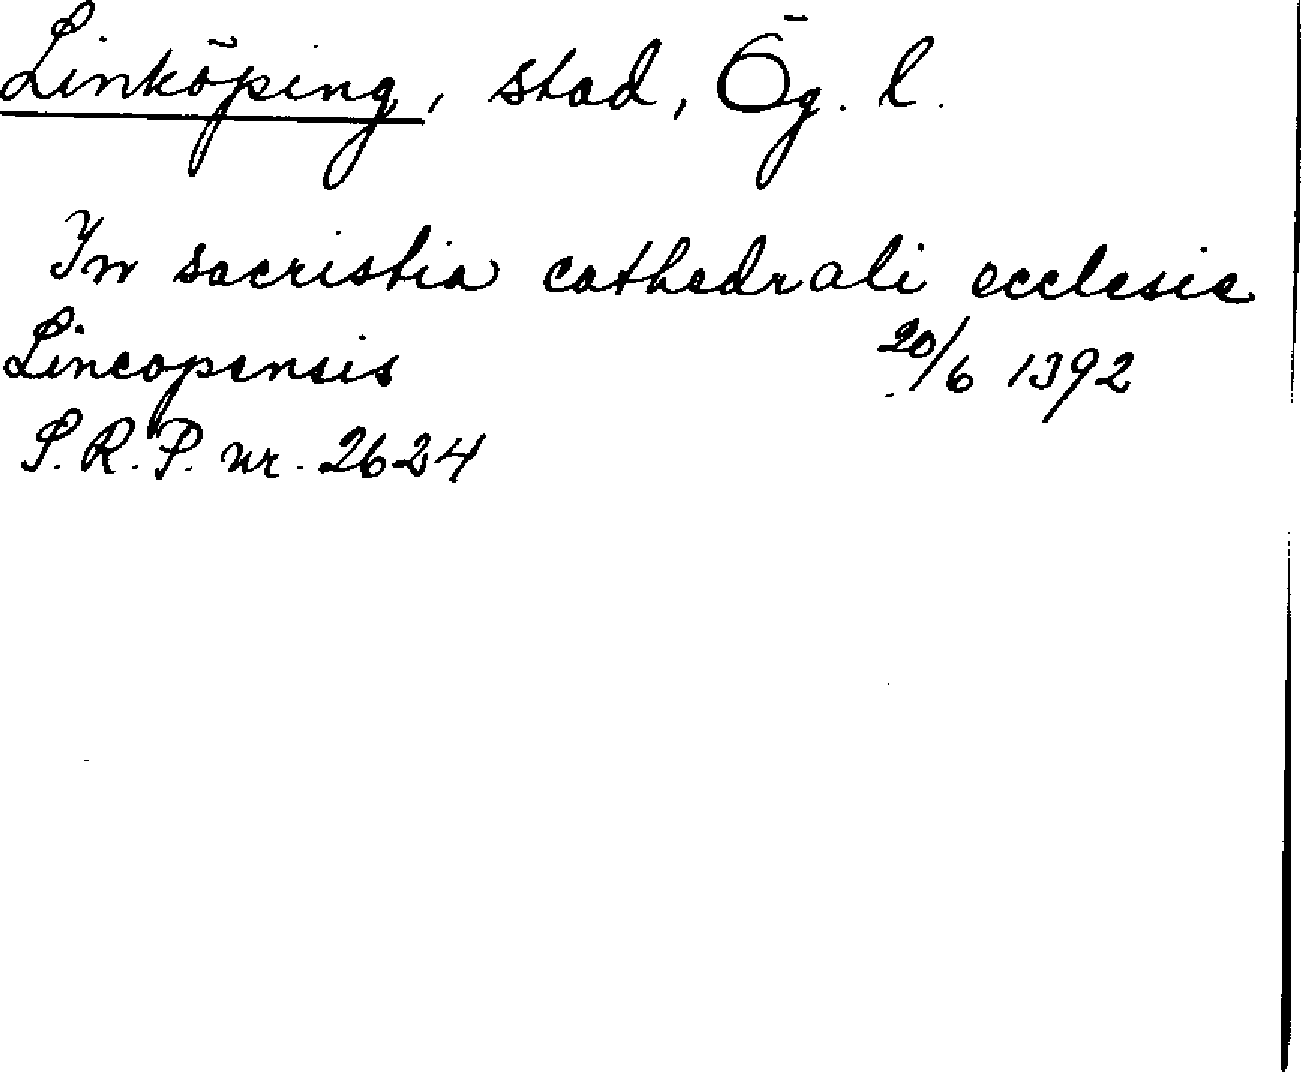 Linköping, stad, Ög. l.
In sacristia cathedrali ecclesie
Lincopensis 20/6 1392
S.R.P. nr. 2624